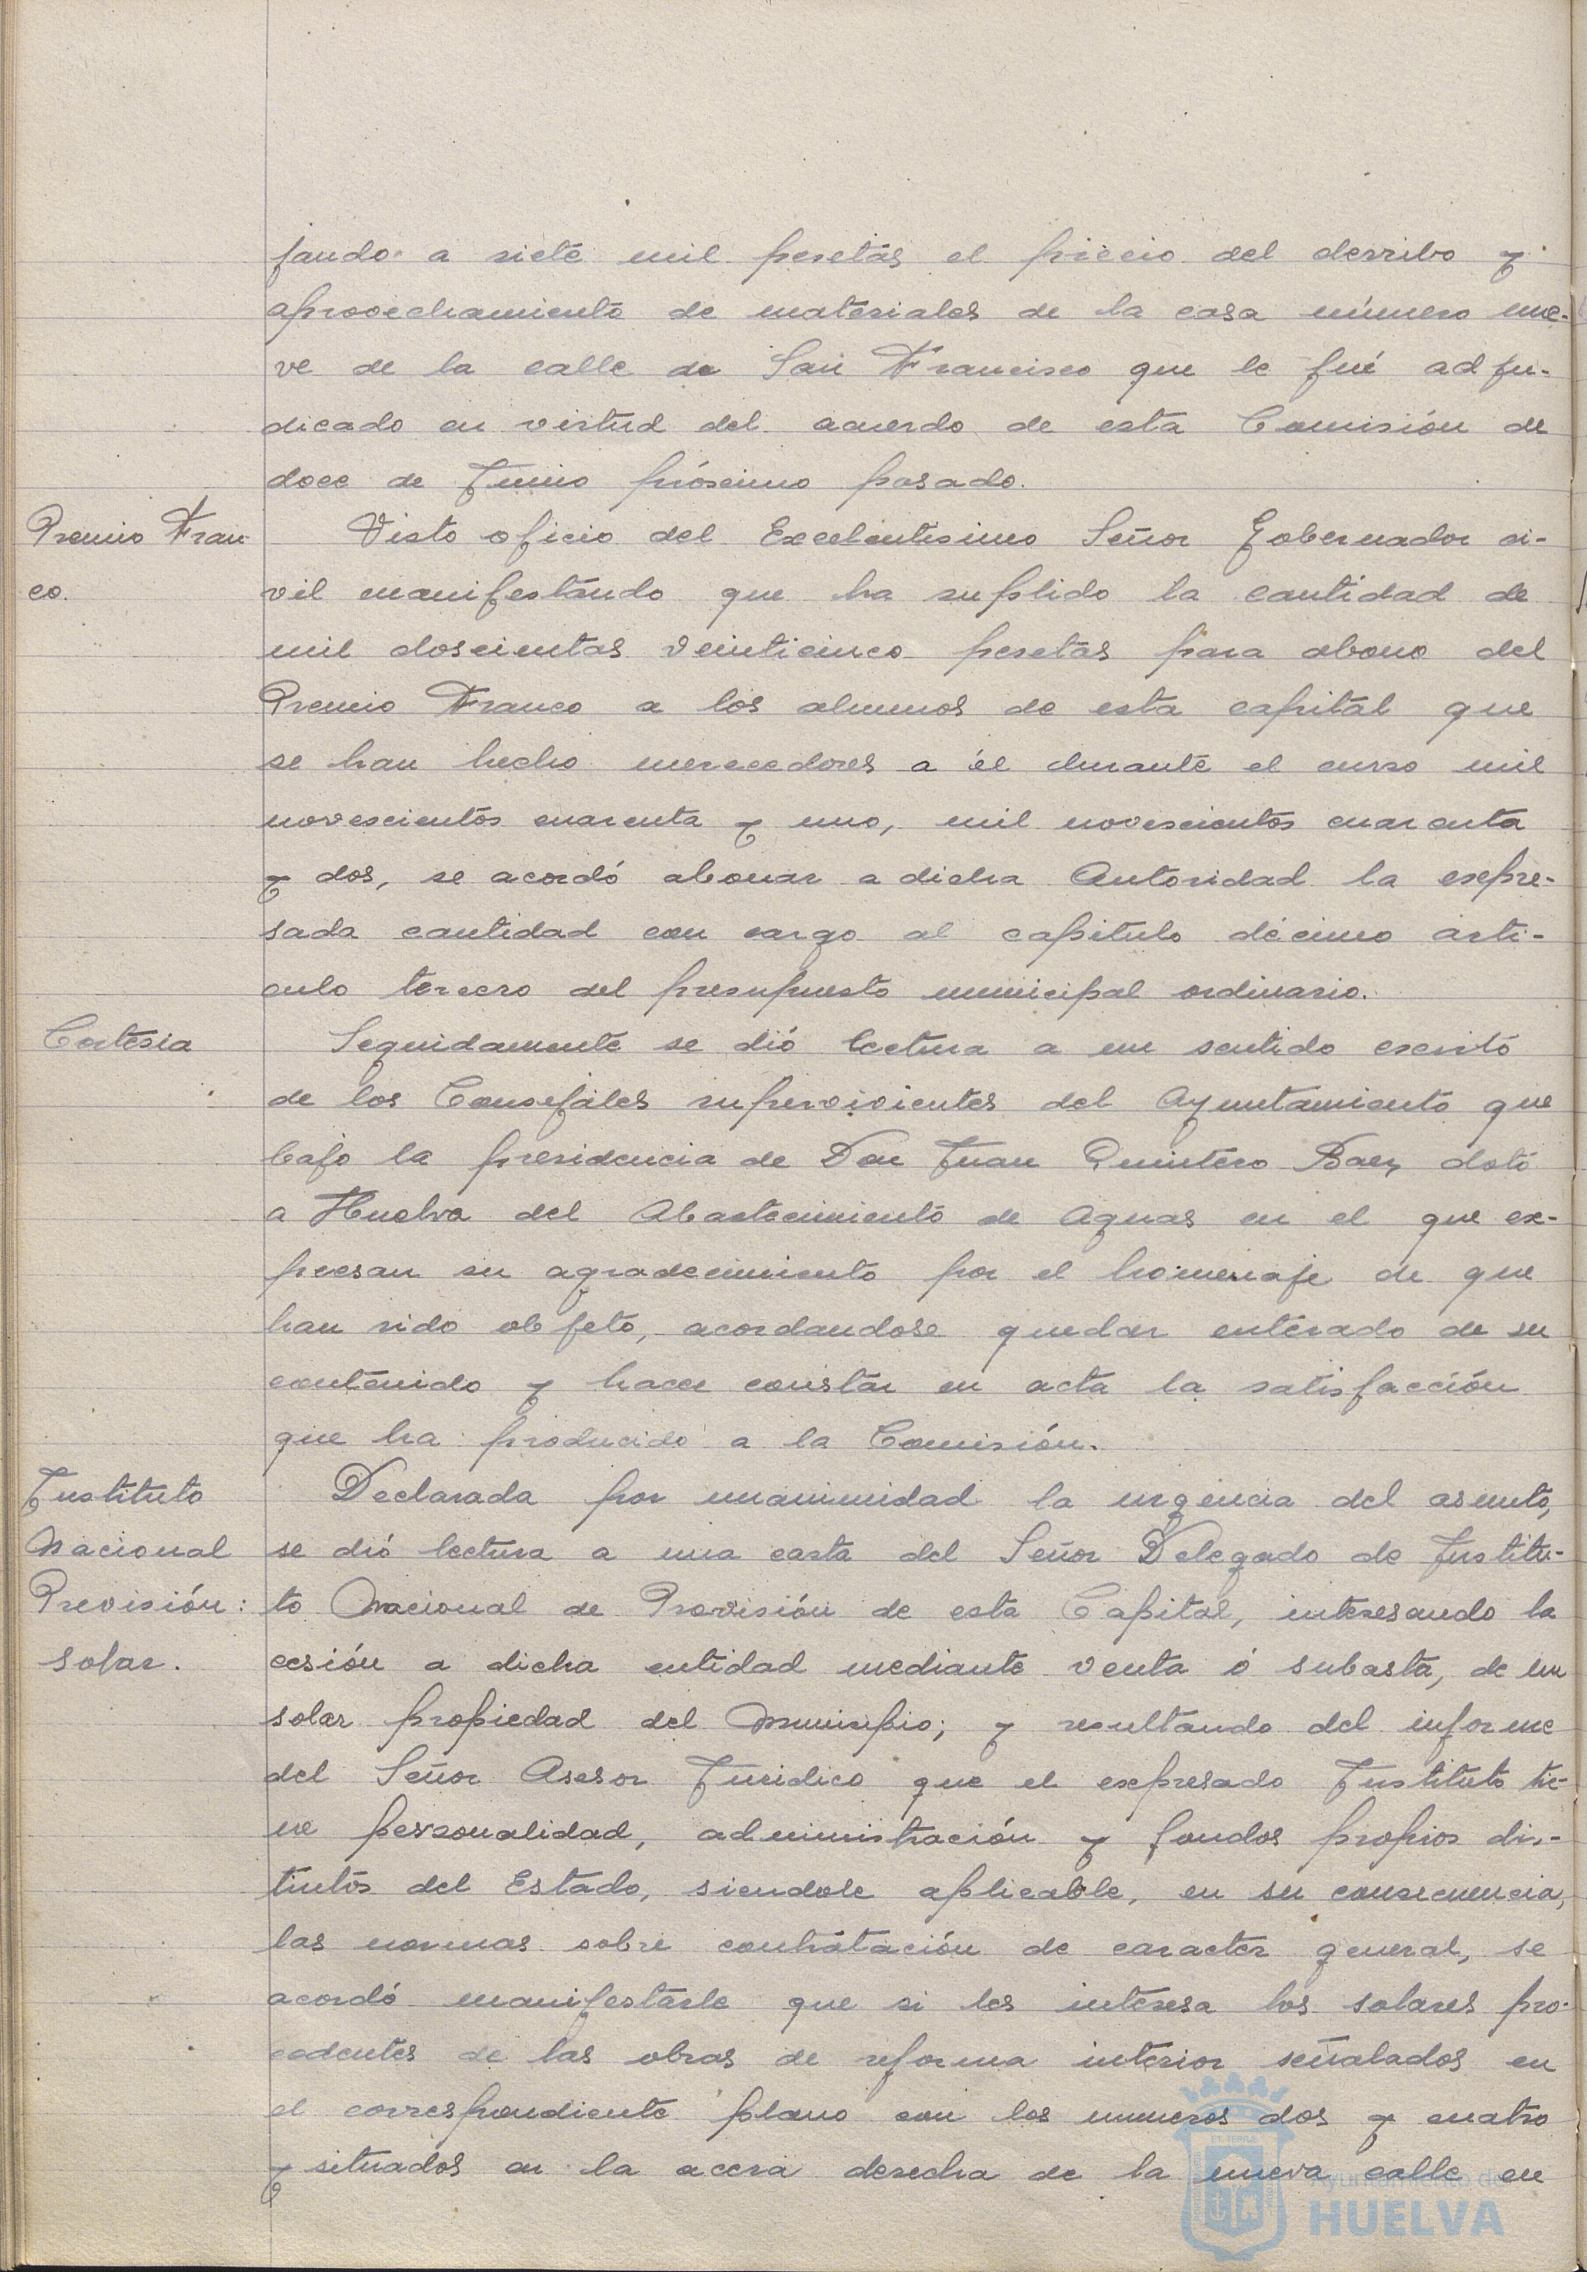 jando a siete mil pesetas el precio del derribo y
aprovechamiento de materiales de la casa número nue-
ve de la calle de San Francisco que le fué adju-
dicado en virtud del acuerdo de esta Comisión de
doce de Junio próximo pasado.
Premio Fran
co.
Visto oficio del Excelentisimo Señor Gobernador ci-
vil manifestando que ha suplido la cantidad de
mil doscientas veinticinco pesetas para abono del
Premio Franco a los alumnos de esta capital que
se han hecho merecedores a él durante el curso mil
novescientos cuarenta y uno, mil novescientos cuarenta
y dos, se acordó abonar a dicha Autoridad la expre-
sada cantidad con cargo al capitulo décimo arti-
culo tercero del presupuesto municipal ordinario.
Cortesia
Seguidamente se dió lectura a un sentido escrito
de los Consejales supervivientes del Ayuntamiento que
bajo la presidencia de Don Juan Quintero Baez dotó
a Huelva del Abastecimiento de Aguas en el que ex-
presan su agradecimiento por el homenaje de que
han sido objeto, acordandose quedar enterado de su
contenido y hacer constar en acta la satisfacción
que ha producido a la Comisión.
Instituto
Nacional
Previsión:
solar.
Declarada por unanimidad la urgencia del asunto,
se dió lectura a una carta del Señor Delegado de Institu-
to Nacional de Provisión de esta Capital, interesando la
cesión a dicha entidad mediante venta ó subasta, de un
solar propiedad del Municipio; y resultando del informe
del Señor Asesor Juridico que el expresado Instituto tie-
ne personalidad, administración y fondos propios dis-
tintos del Estado, siendole aplicable, en su consecuencia,
las normas sobre contratación de caracter general, se
acordó manifestarle que si les interesa los solares pro-
cedentes de las obras de reforma interior señalados en
el correspondiente plano con los numeros dos y cuatro
y situados en la acera derecha de la nueva calle en
Ayuntamiento de
HUELVA